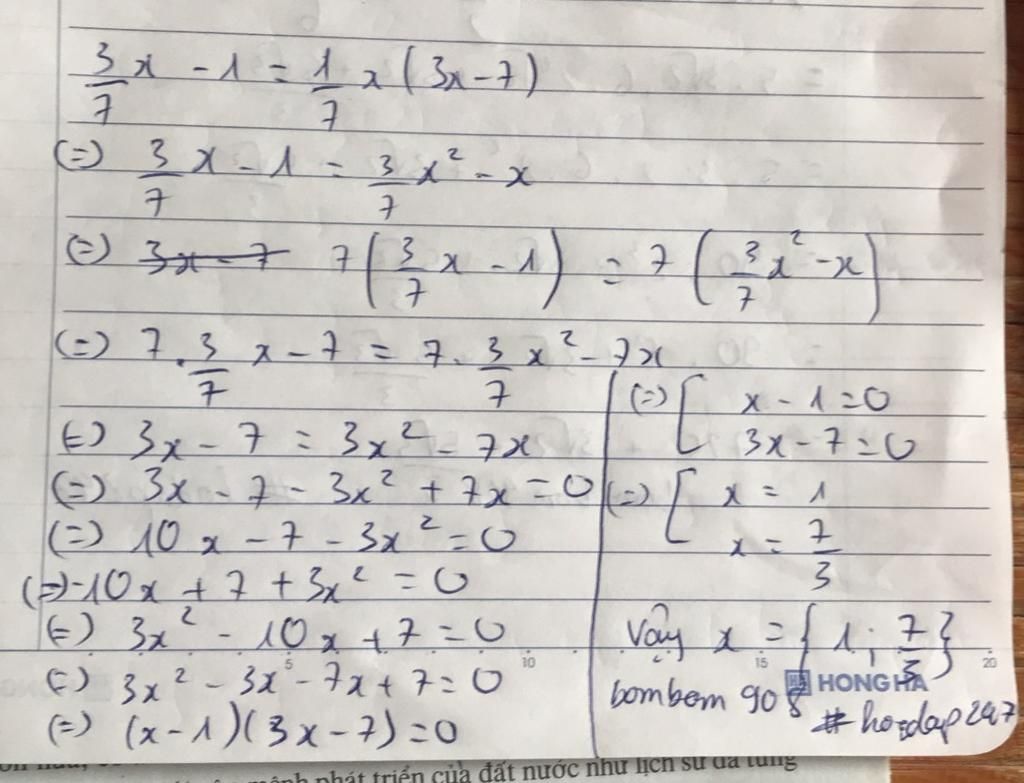 3/7 x - 1 = 1/7 x (3x - 7)
(=) 3/7 x - 1 = 3/7 x² - x
(=) 3x - 7 7(3/7 x - 1) = 7(3/7 x² - x)
(=) 7. 3/7 x - 7 = 7. 3/7 x² - 7x
(=) 3x - 7 = 3x² - 7x
(=) 3x - 7 - 3x² + 7x = 0
(=) 10x - 7 - 3x² = 0
(=) -10x + 7 + 3x² = 0
(=) 3x² - 10x + 7 = 0
(=) 3x² - 3x - 7x + 7 = 0
(=) (x - 1)(3x - 7) = 0
(=) [ x - 1 = 0
3x - 7 = 0
(=) [ x = 1
x = 7/3
Vậy x = {1; 7/3}
bombem 908
# hoidap247
5 10 15 20
HONG HA
mệnh phát triển của đất nước như lịch sử đã từng